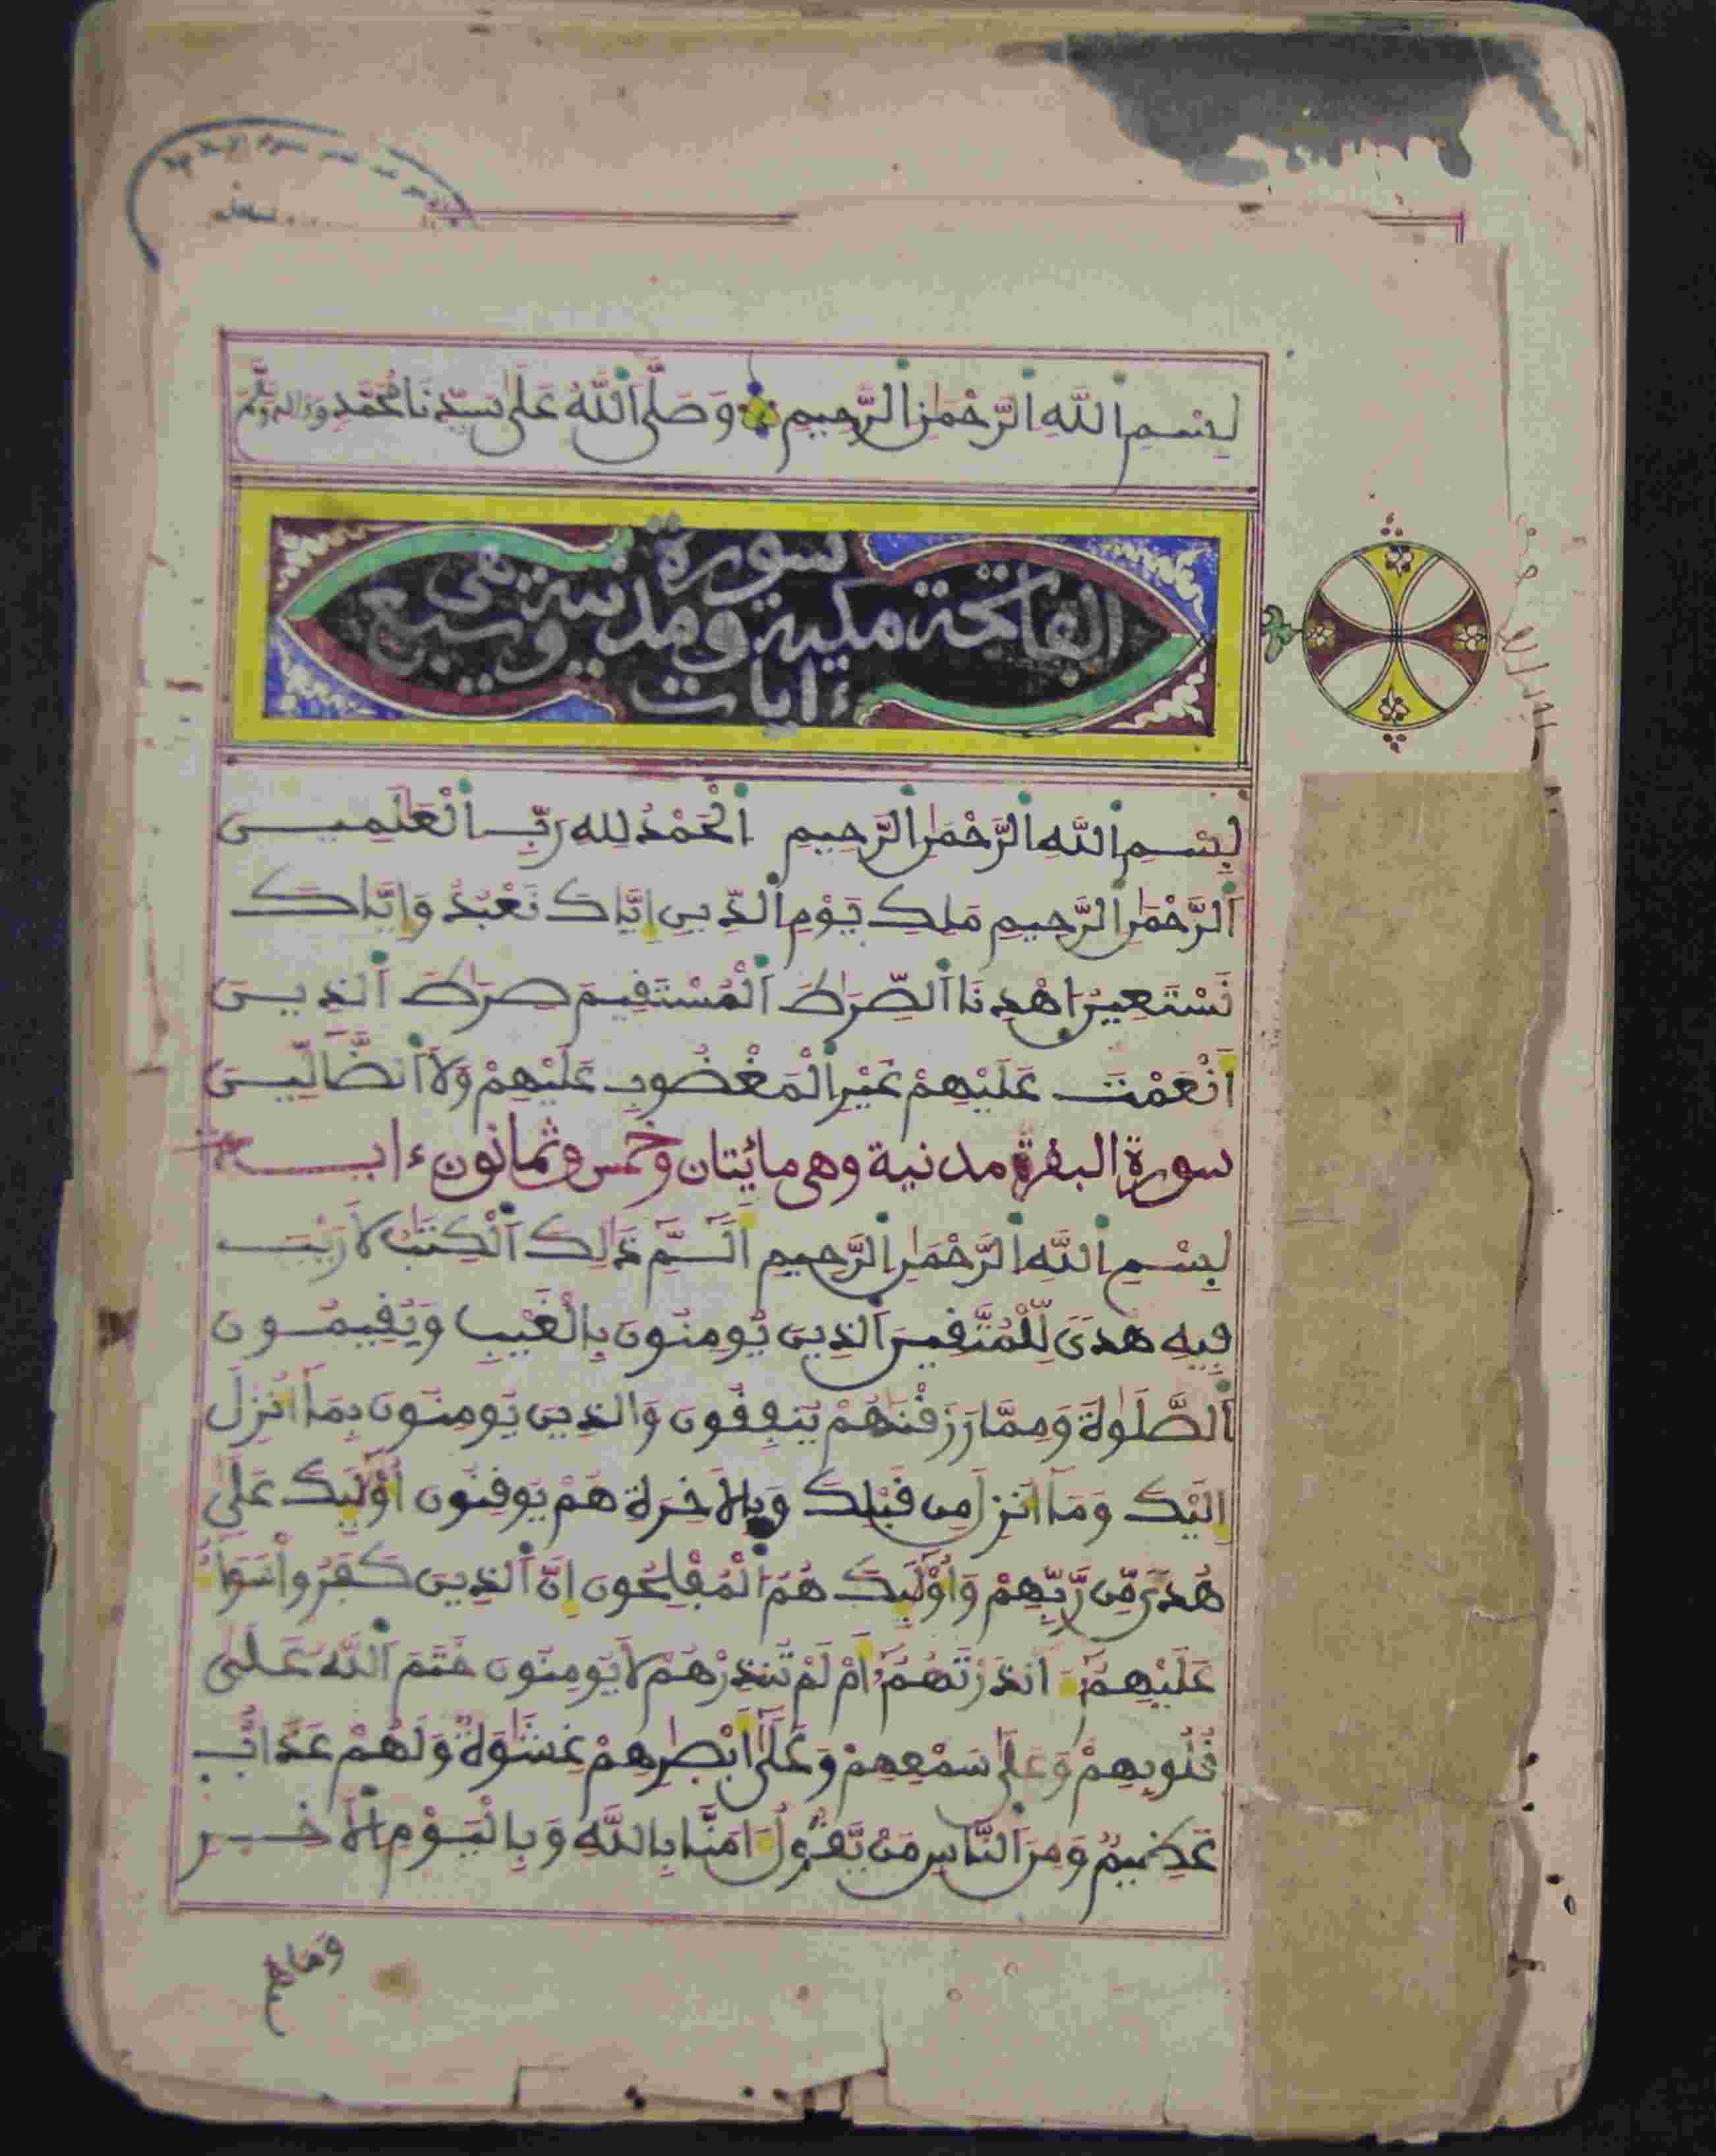 بِسْمِ اللَّهِ الرَّحْمَٰنِ الرَّحِيمِ وَصَلَّى اللَّهُ عَلَىٰ سَيِّدِنَا مُحَمَّدٍ وَءَالِهِ وَسَلَّمَ
سورة
الفاتحة مكية ومدنية وهى سبع
ءايات
بِسْمِ اللَّهِ الرَّحْمَٰنِ الرَّحِيمِ الْحَمْدُ لِلهِ رَبِّ الْعَٰلَمِينَ
الرَّحْمَٰنِ الرَّحِيمِ مَلِكِ يَوْمِ الدِّينِ إِيَّاكَ نَعْبُدُ وَإِيَّاكَ
نَسْتَعِينُ اهْدِنَا الصِّرَٰطَ الْمُسْتَفِيمَ صِرَٰطَ الذِينَ
أَنْعَمْتَ عَلَيْهِمْ غَيْرِ الْمَغْضُوبِ عَلَيْهِمْ وَلَا الضَّالِّينَ
سورة البفرة مدنية وهى مائتان وخمس وثمانون ءاية
بِسْمِ اللَّهِ الرَّحْمَٰنِ الرَّحِيمِ أَلَٓمِّٓ ذَٰلِكَ الْكِتَٰبُ لَا رَيْبَ
فِيهِ هُدىً لِّلْمُتَّفِينَ الذِينَ يُومِنُونَ بِالْغَيْبِ وَيُفِيمُونَ
الصَّلَوٰةَ وَمِمَّا رَزَفْنَٰهُمْ يُنفِفُونَ وَالذِينَ يُومِنُونَ بِمَا أُنزِلَ
إِلَيْكَ وَمَا أُنزِلَ مِن فَبْلِكَ وَبِالْأَخِرَةِ هُمْ يُوفِنُونَ أُوْلَٰئِكَ عَلَىٰ
هُدىً مِّن رَّبِّهِمْ وَأُوْلَٰئِكَ هُمُ الْمُفْلِحُونَ إِنَّ الذِينَ كَفَرُوا سَوَآءٌ
عَلَيْهِمُ ءَانذَرْتَهُمُ أَمْ لَمْ تُنذِرْهُمْ لَا يُومِنُونَ خَتَمَ اللَّهُ عَلَىٰ
فُلُوبِهِمْ وَعَلَىٰ سَمْعِهِمْ وَعَلَىٰ أَبْصَٰرِهِمْ غِشَٰوَةٌ وَلَهُمْ عَذَابٌ
عَظِيمٌ وَمِنَ النَّاسِ مَنْ يَّفُولُ ءَامَنَّا بِاللَّهِ وَبِالْيَوْمِ الْأَخِرِ
وَمَا هُم